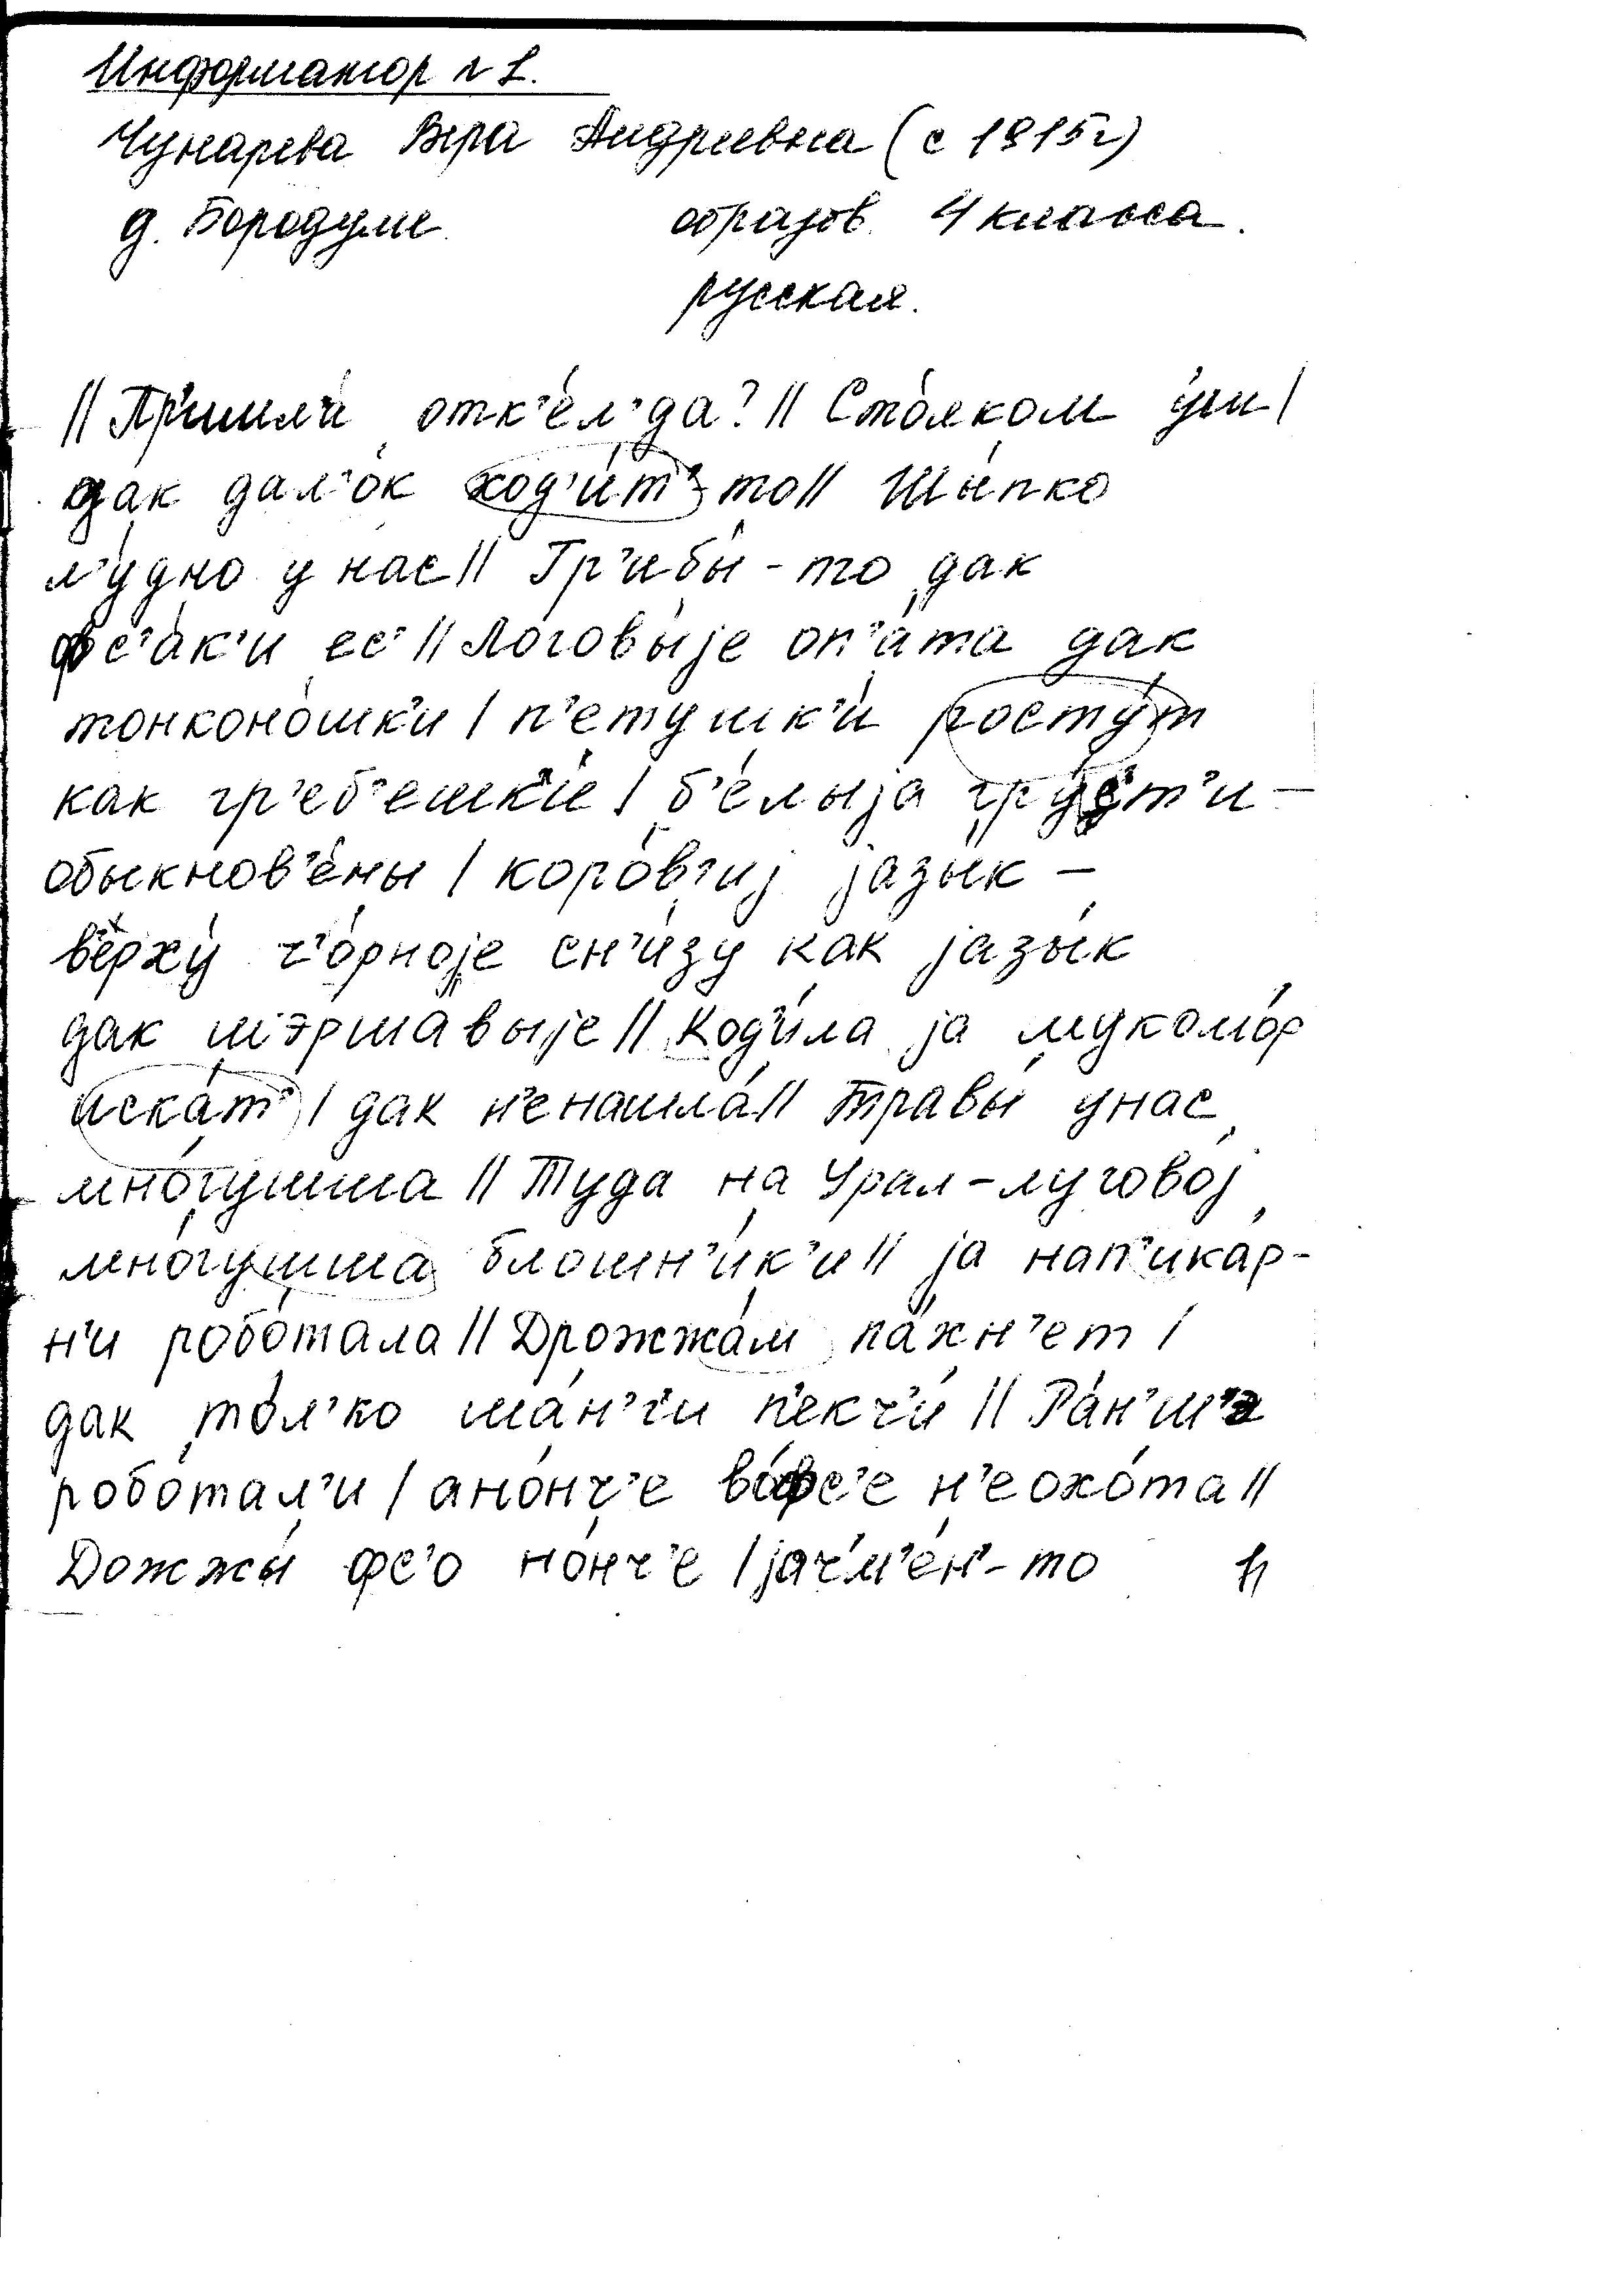 Информатор № 1.
Чунарева Вера Андреевна (с 1915 г)
д. Бородули образов. 4 класса.
русская.
|| Пр'ишл'и́ отк'е́л'-да? || Сто́яком у́ш |
дак дал'о́к ход'и́т'-то || Шы́пко
л'у́дно у нас || Гр'ибы́-то дак
фс'а́к'и ес' || Логовы́jе оп'а́та дак
тонконо́шк'и | п'етушк'и́ росту́т
как гр'еб'ешк'и́ | б'е́лыjа гру́ст'и –
обыкнов'е́ны | коро́в'иj jазы́к –
в'ерху́ ч'о́рноjе сн'и́зу как jазы́к
дак шэрша́выjе || Ход'и́ла jа мукомо́р
иска́т' | дак н'енашла́ || Травы́ унас
мно́гушша || Туда на Урал-луговоj
мно́гушша блошн'и́к'и || jа нап'ика́р-
н'и робо́тала || Дрожжа́м па́хн'ет |
дак то́л'ко ша́н'г'и п'екч'и́ || Ра́н'ш'э
робо́тал'и | ано́нч'е во́фс'е н'еохо́та ||
Дожжы́ фс'о но́нч'е | jач'м'е́н'-то